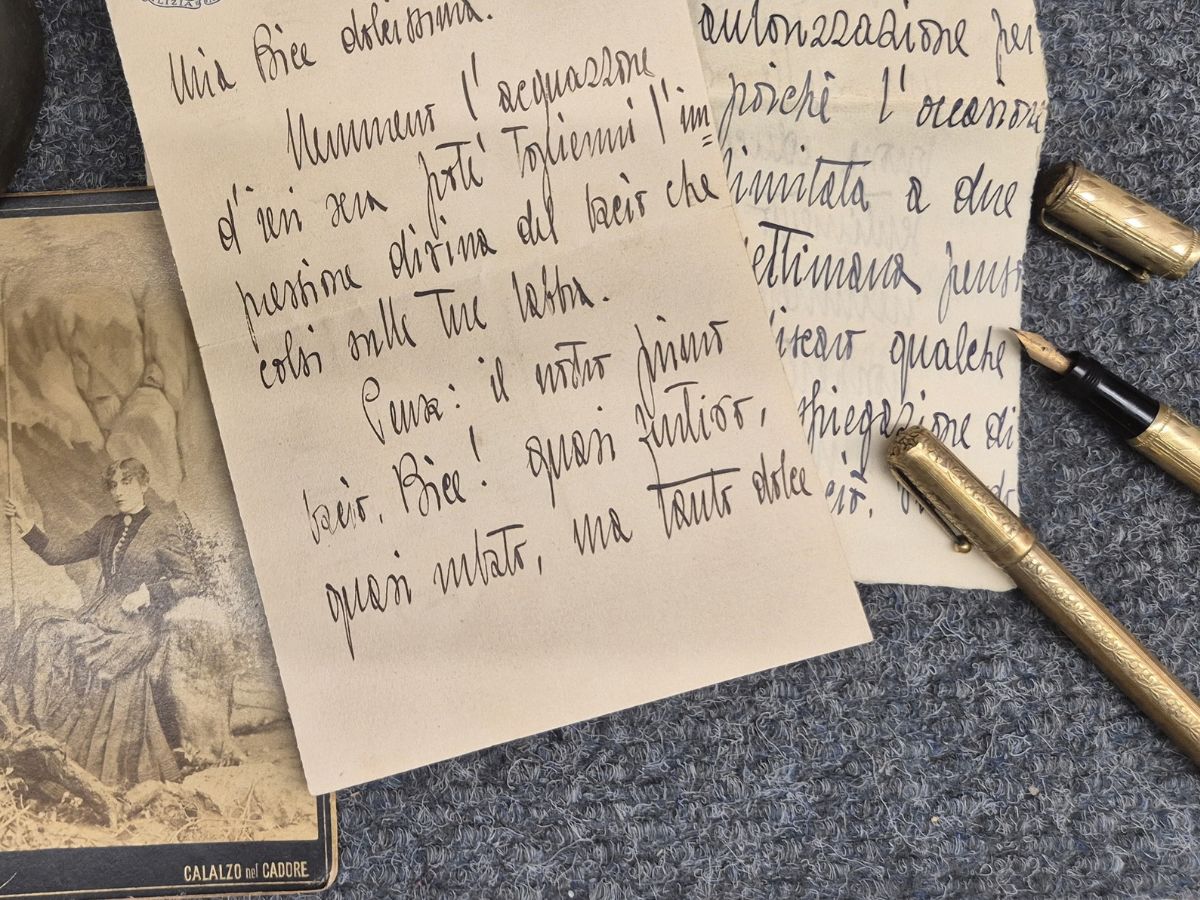 LIZIA
Mia Bice dolcissima.
Nemmeno l'acquazzone
d'ieri sera poté togliermi l'im=
pressione divina del bacio che
colsi sulle tue labbra.
Pensa: il nostro primo
bacio, Bice! quasi furtivo,
quasi rubato, ma tanto dolce
autorizzazione per
poichè l'occasione
limitata a due
settimana penso
qualche
spiegazione di
CALALZO nel CADORE